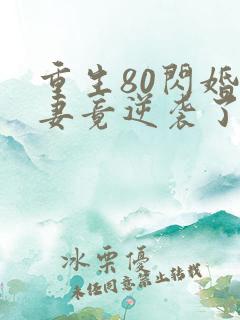 重生80閃婚
妻竟逆袭了
冰栗優
未经同意禁止转载